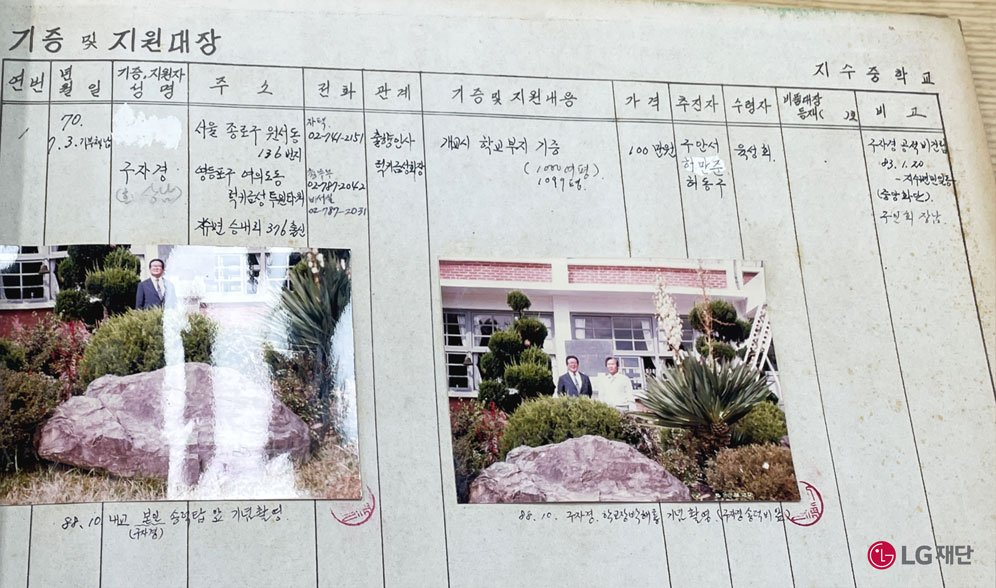 기증 및 지원대장
지수중학교
연번 년월일 기증.지원자성명 주소 전화 관계 기증 및 지원내용 가격 추진자 수령자 비품대장등재( ) 비고
1 70.
서울 종로구 원서동
136번지
자택
02-741-2151
출향인사
럭키금성회장
개교시 학교부지 기증
1099평
100만원
구만서
허만준
허동구
육성회
구자경
영등포구 여의도동
럭키금성 트윈타워
02-787-2042
비서실
02-787-2031
승내리 376 출신
구자경 공적비건립
83.1.20
(중앙화단).
구인회 장남
88.10 내교 본인 송덕탑 앞 기념촬영
(구자경)
88.10. 구자경. 학교장 기념촬영 (구자경 송덕비 앞)
LG재단